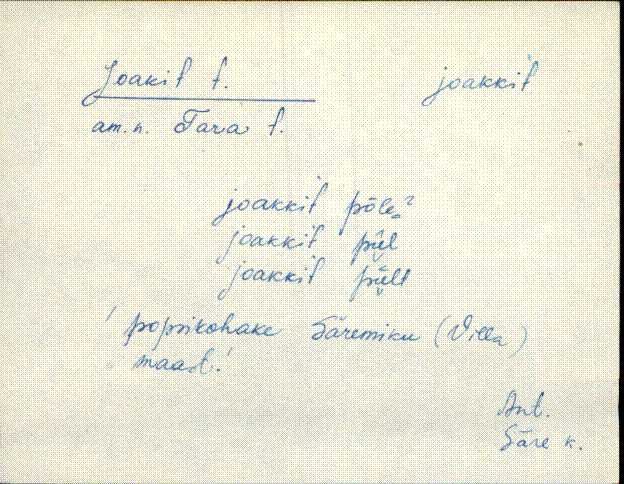 Joakit t.
joakkit
am.n. Tara t.
joakkit põle?
joakkit pi̬i̬l
joakkit pi̬i̬lt
' popsikohake Säremiku (Villa)
maad.'
Ant.
Säre k.